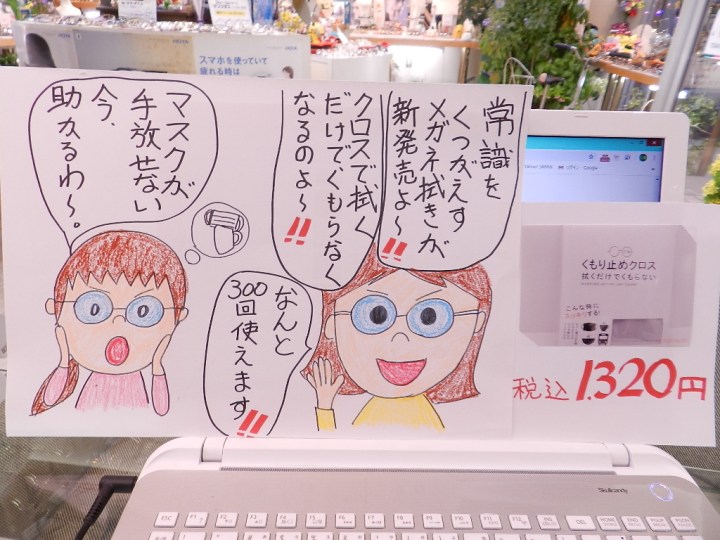 スマホを使っていて
疲れる時は
常識を
くつがえす
メガネ拭きが
新発売よ〜!!
クロスで拭く
だけでくもらなく
なるのよ〜!!
なんと
300回使えます!!
マスクが
手放せない
今、
助かるわ〜。
くもり止めクロス
拭くだけでくもらない
こんな時に
税込1,320円
Skullcandy
ESC F1 F2 F3 F4 F5 F6 F7 F8 F9 F10 F11 F12